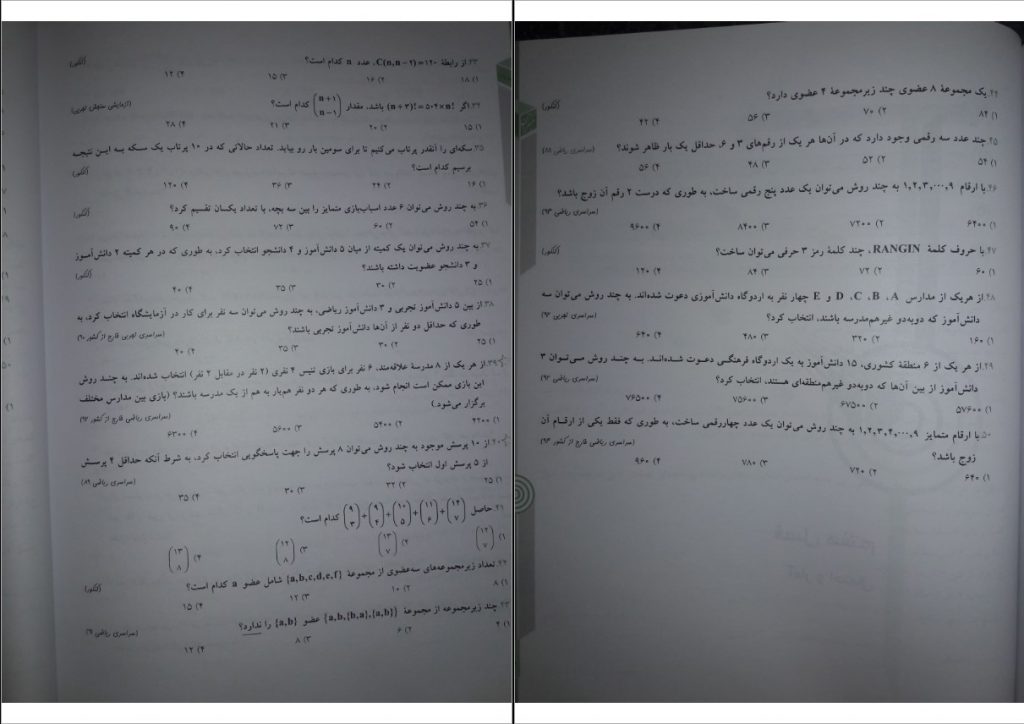 ۳۳. از رابطهٔ C(n,n−۲)=۱۲۰، عدد n کدام است؟ (کنکور)
۱) ۱۸ ۲) ۱۶ ۳) ۱۵ ۴) ۱۲
۳۴. اگر (n+۳)!=۵۰۴×n! باشد، مقدار (n+۱ / n−۱) کدام است؟ (آزمایشی سنجش تجربی)
۱) ۱۵ ۲) ۲۰ ۳) ۲۱ ۴) ۲۸
۳۵. سکه‌ای را آنقدر پرتاب می‌کنیم تا برای سومین بار رو بیاید. تعداد حالاتی که در ۱۰ پرتاب یک سکه به این نتیجه
برسیم کدام است؟ (کنکور)
۱) ۱۶ ۲) ۲۴ ۳) ۳۶ ۴) ۱۲۰
۳۶. به چند روش می‌توان ۶ عدد اسباب‌بازی متمایز را بین سه بچه، با تعداد یکسان تقسیم کرد؟
۱) ۵۴ ۲) ۶۰ ۳) ۷۲ ۴) ۹۰
۳۷. به چند روش می‌توان یک کمیته از میان ۵ دانش‌آموز و ۴ دانشجو انتخاب کرد، به طوری که در هر کمیته ۲ دانش‌آموز
و ۳ دانشجو عضویت داشته باشند؟ (کنکور)
۱) ۲۵ ۲) ۳۰ ۳) ۳۵ ۴) ۴۰
۳۸. از بین ۵ دانش‌آموز تجربی و ۳ دانش‌آموز ریاضی، به چند روش می‌توان سه نفر برای کار در آزمایشگاه انتخاب کرد، به
طوری که حداقل دو نفر از آن‌ها دانش‌آموز تجربی باشند؟ (سراسری تجربی خارج از کشور ۹۰)
۱) ۲۵ ۲) ۳۰ ۳) ۳۵ ۴) ۴۰
۳۹. از هر یک از ۸ مدرسهٔ علاقه‌مند، ۶ نفر برای بازی تنیس ۴ نفری (۲ نفر در مقابل ۲ نفر) انتخاب شده‌اند. به چند روش
این بازی ممکن است انجام شود، به طوری که هر دو نفر هم‌یار به هم از یک مدرسه باشند؟ (بازی بین مدارس مختلف
برگزار می‌شود.) (سراسری ریاضی خارج از کشور ۹۲)
۱) ۴۲۰۰ ۲) ۵۴۰۰ ۳) ۵۶۰۰ ۴) ۶۳۰۰
۴۰. از ۱۰ پرسش موجود به چند روش می‌توان ۸ پرسش را جهت پاسخگویی انتخاب کرد، به شرط آنکه حداقل ۴ پرسش
از ۵ پرسش اول انتخاب شود؟ (سراسری ریاضی ۸۹)
۱) ۲۵ ۲) ۳۲ ۳) ۳۰ ۴) ۳۵
۴۱. حاصل (۹ / ۳)+(۹ / ۴)+(۱۰ / ۵)+(۱۱ / ۶)+(۱۲ / ۷) کدام است؟
۱) (۱۲ / ۷) ۲) (۱۳ / ۷) ۳) (۱۲ / ۸) ۴) (۱۳ / ۸)
۴۲. تعداد زیرمجموعه‌های سه‌عضوی از مجموعهٔ {a,b,c,d,e,f} شامل عضو a کدام است؟ (کنکور)
۱) ۸ ۲) ۱۰ ۳) ۱۲ ۴) ۱۵
۴۳. چند زیرمجموعه از مجموعهٔ {a,b,{b,a},{a,b}} عضو {a,b} را ندارد؟
۱) ۴ ۲) ۶ ۳) ۸ ۴) ۱۲
۴۴. یک مجموعهٔ ۸ عضوی چند زیرمجموعهٔ ۴ عضوی دارد؟ (کنکور)
۱) ۸۴ ۲) ۷۰ ۳) ۵۶ ۴) ۴۲
۴۵. چند عدد سه رقمی وجود دارد که در آن‌ها هر یک از رقم‌های ۳ و ۶، حداقل یک بار ظاهر شوند؟ (سراسری ریاضی ۸۸)
۱) ۵۴ ۲) ۵۲ ۳) ۴۸ ۴) ۵۶
۴۶. با ارقام ۱,۲,۳,...,۹ به چند روش می‌توان یک عدد پنج رقمی ساخت، به طوری که درست ۲ رقم آن زوج باشد؟
(سراسری ریاضی ۹۳)
۱) ۶۴۰۰ ۲) ۷۲۰۰ ۳) ۸۴۰۰ ۴) ۹۶۰۰
۴۷. با حروف کلمهٔ RANGIN، چند کلمهٔ رمز ۳ حرفی می‌توان ساخت؟ (کنکور)
۱) ۶۰ ۲) ۷۲ ۳) ۸۴ ۴) ۱۲۰
۴۸. از هریک از مدارس A، B، C، D و E چهار نفر به اردوگاه دانش‌آموزی دعوت شده‌اند. به چند روش می‌توان سه
دانش‌آموز که دوبه‌دو غیرهم‌مدرسه باشند، انتخاب کرد؟ (سراسری تجربی ۹۲)
۱) ۱۶۰ ۲) ۳۲۰ ۳) ۴۸۰ ۴) ۶۴۰
۴۹. از هر یک از ۶ منطقهٔ کشوری، ۱۵ دانش‌آموز به یک اردوگاه فرهنگی دعوت شده‌اند. به چند طریق می‌توان ۳
دانش‌آموز از بین آن‌ها که دوبه‌دو غیرهم‌منطقه‌ای هستند، انتخاب کرد؟ (سراسری ریاضی ۹۲)
۱) ۵۷۶۰۰ ۲) ۶۷۵۰۰ ۳) ۷۵۶۰۰ ۴) ۷۶۵۰۰
۵۰. با ارقام متمایز ۱,۲,۳,۴,...,۹ به چند روش می‌توان یک عدد چهاررقمی ساخت، به طوری که فقط یکی از ارقام آن
زوج باشد؟ (سراسری ریاضی خارج از کشور ۹۳)
۱) ۶۴۰ ۲) ۷۲۰ ۳) ۷۸۰ ۴) ۹۶۰